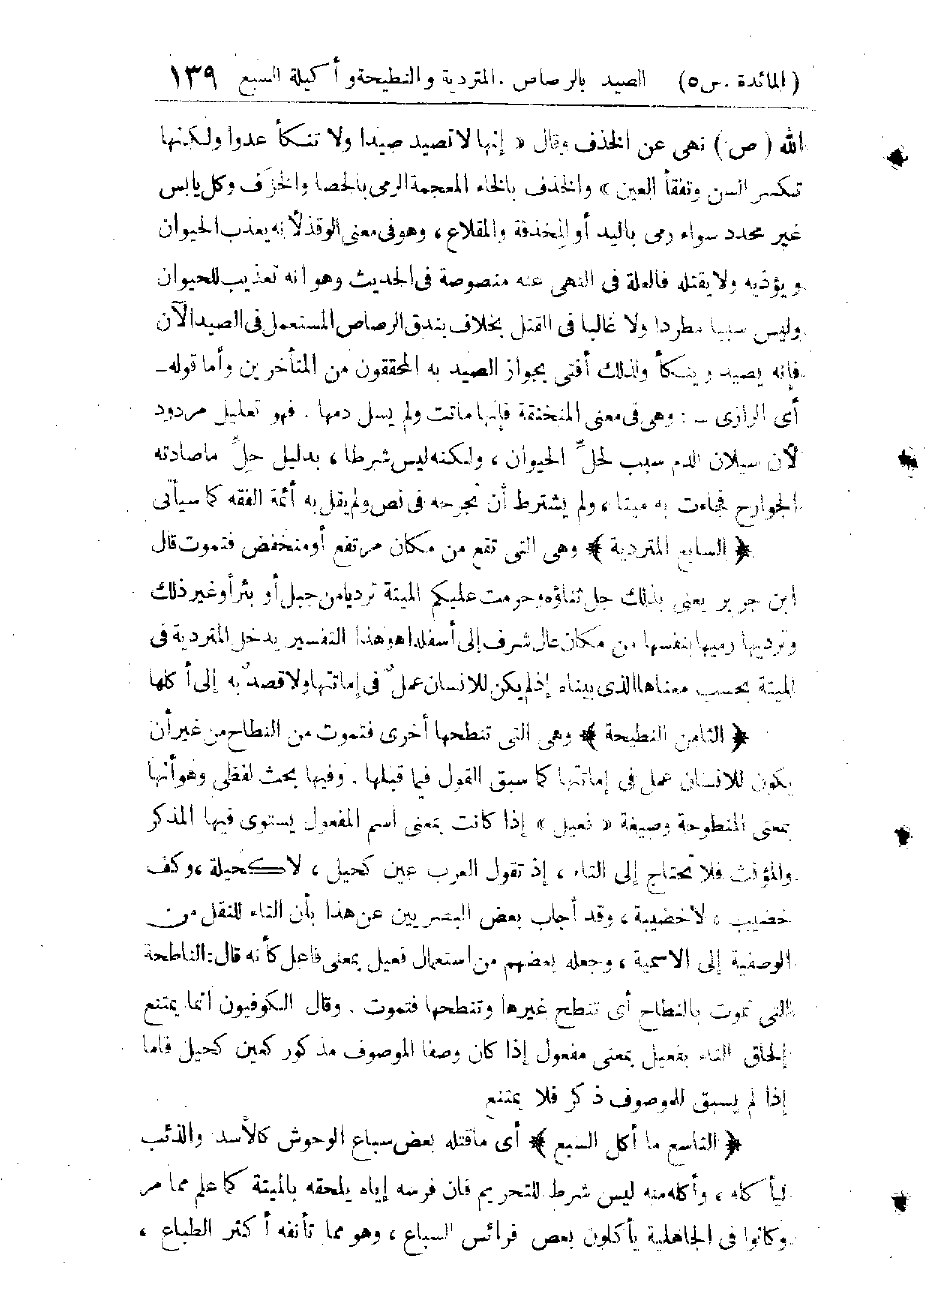 (المائدة . س٥) الصيد بالرصاص . المتردية والنطيحة وأكيلة السبع ١٣٩
الله (ص) نهى عن الخذف وقال « إنها لا تصيد صيدا ولا تنكأ عدوا ولكنها
تكسر السن وتفقأ العين » والخذف بالخاء المعجمة الرمي بالحصا والخزف وكل يابس
غير محدد سواء رمى باليد أو المخذفة والمقلاع ، وهو في معنى الوقذ لأنه يعذب الحيوان
ويؤذيه ولا يقتله فالعلة في النهي عنه منصوصة في الحديث وهو انه تعذيب للحيوان
وليس سببا مطردا ولا غالبا في القتل بخلاف بندق الرصاص المستعمل في الصيد الآن
فانه يصيد وينكأ ولذلك أفتى بجواز الصيد به المحققون من المتأخرين وأما قوله ـ
أي الرازي ـ : وهي في معنى المنخنقة فإنها ماتت ولم يسل دمها . فهو تعليل مردود
لأن سيلان الدم سبب لحلِّ الحيوان ، ولكنه ليس شرطا ، بدليل حلِّ ما صادته
الجوارح فجاءت به ميتا ، ولم يشترط أن تجرحه في نص ولم يقل به أئمة الفقه كما سيأتي
﴿ السابع المتردية ﴾ وهي التي تقع من مكان مرتفع أو منخفض فتموت قال
ابن جرير يعني بذلك جل ثناؤه وحرمت عليكم الميتة ترديا من جبل أو بئر أو غير ذلك
وترديها رميها بنفسها من مكان عال شرف إلى أسفله اهـ وهذا التفسير يدخل المتردية في
الميتة بحسب معناها الذي بيناه إذ لم يكن للانسان عملٌ في إماتتها ولا قصدٌ به إلى أكلها
﴿ الثامن النطيحة ﴾ وهي التي تنطحها أخرى فتموت من النطاح من غير أن
يكون للانسان عمل في إماتتها كما سبق القول فيما قبلها . وفيها بحث لفظي وهو أنها
بمعنى المنطوحة وصيغة « فعيل » إذا كانت بمعنى اسم المفعول يستوي فيها المذكر
والمؤنث فلا تحتاج إلى التاء ، إذ تقول العرب عين كحيل ، لا كحيلة ، وكف
خضيب ، لا خضيبة ، وقد أجاب بعض البصريين عن هذا بأن التاء للنقل من
الوصفية إلى الاسمية ، وجعله بعضهم من استعمال فعيل بمعنى فاعل كأنه قال : الناطحة
التي تموت بالنطاح أي تنطح غيرها وتنطحها فتموت . وقال الكوفيون انما يمتنع
إلحاق التاء بفعيل بمعنى مفعول إذا كان وصفا لموصوف مذكور كعين كحيل فاما
إذا لم يسبق للموصوف ذكر فلا يمتنع
﴿ التاسع ما أكل السبع ﴾ أي ما قتله بعض سباع الوحوش كالأسد والذئب
ليأكله ، وأكله منه ليس شرط للتحريم فان فرسه إياه يلحقه بالميتة كما علم مما مر
وكانوا في الجاهلية يأكلون بعض فرائس السباع ، وهو مما تأنفه أكثر الطباع ،